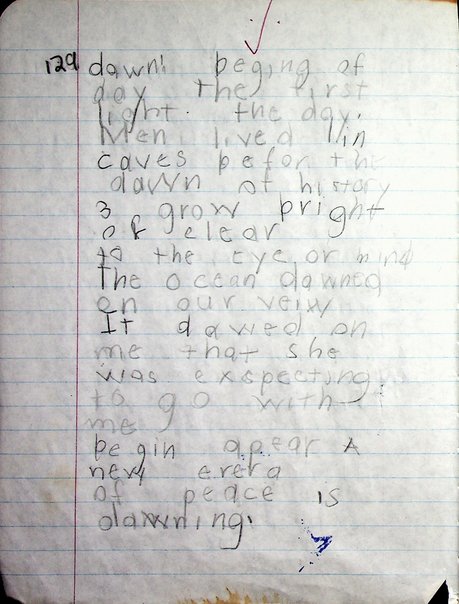 129 dawn: beging of
day the first
light. the day.
Men lived in
caves befor the
dawn of history
3 grow bright
or clear
to the eye or mind
The ocean dawned
on our veiw
It dawed on
me that she
was exspecting
to go with
me
begin apear A
new erera
of peace is
dawning.